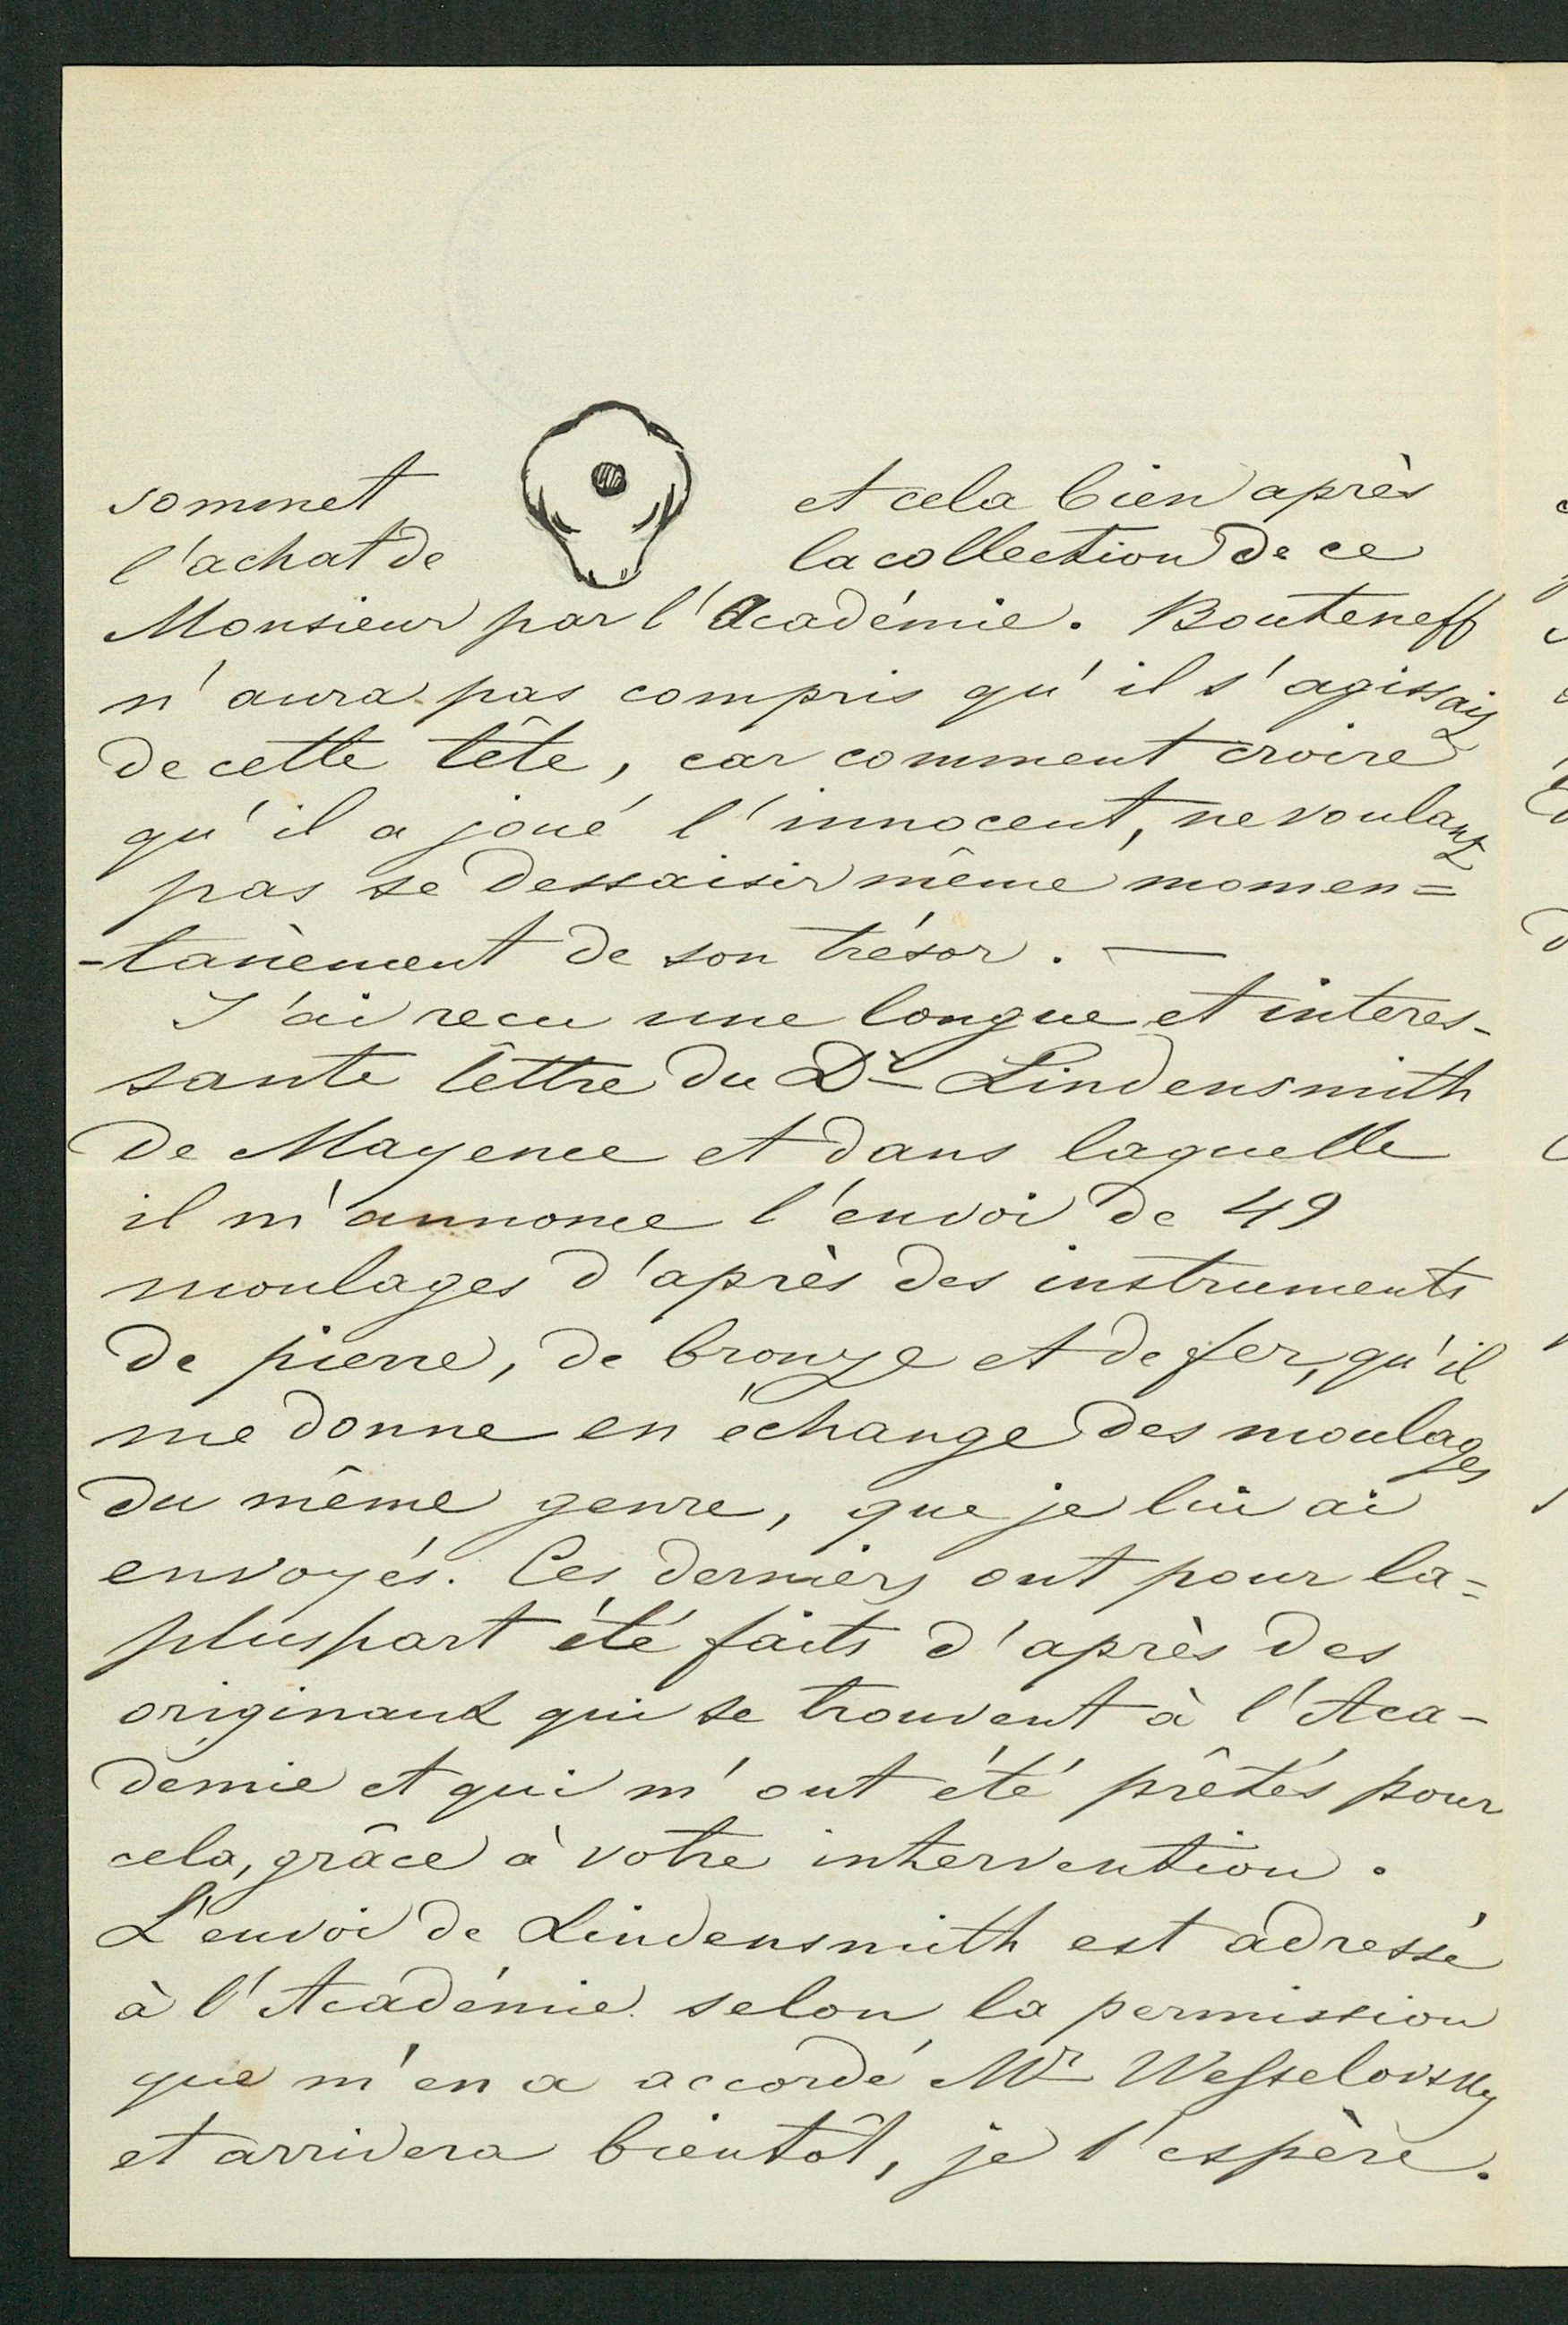 sommet et cela bien après
l'achat de la collection de ce
Monsieur par l'Académie. Bouteneff
n'aura pas compris qu'il s'agissait
de cette tête, car comment croire
qu'il a joué l'innocent, ne voulant
pas se dessaisir même momen=
-tanèment de son trésor. —
J'ai recu une longue et interes-
sante lêttre du Dr Lindensmith
de Mayence et dans laquelle
il m'annonce l'envoi de 49
moulages d'après des instruments
de pierre, de bronze et de fer, qu'il
me donne en échange des moulages
du même genre, que je lui ai
envoyés. Ces derniers ont pour la=
pluspart été faits d'après des
originaux qui se trouvent à l'Aca-
demie et qui m'ont été prêtés pour
cela, grâce à votre intervention.
L'envoi de Lindensmith est adressé
à l'Académie selon la permission
que m'en a accordé Mr Wesselovsky
et arrivera bientôt, je l'espère.